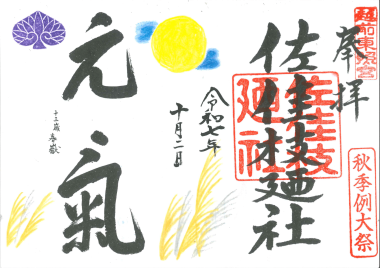 越前東照宮
奉拝
秋季例大祭
佐佳枝廼社
佐佳枝廼社
令和七年
十月二日
元氣
十三歳 春嶽